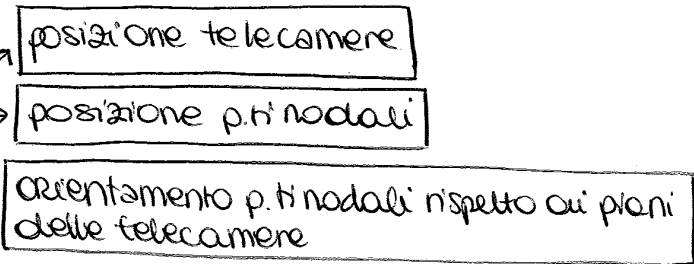 posizione telecamere
posizione p.ti nodali
orientamento p.ti nodali rispetto ai piani
delle telecamere